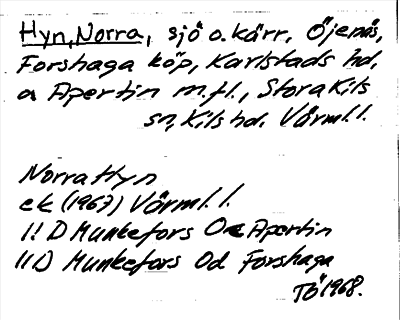 Hyn, Norra, sjö o. kärr, Öjenäs,
Forshaga köp, Karlstads hd,
a Apertin m.fl., Stora Kils
sn, Kils hd. Värml. l.
Norra Hyn
ek (1967) Värml. l.
11 D Munkfors Oc Apertin
11 D Munkfors Od Forshaga
Tö 1968.